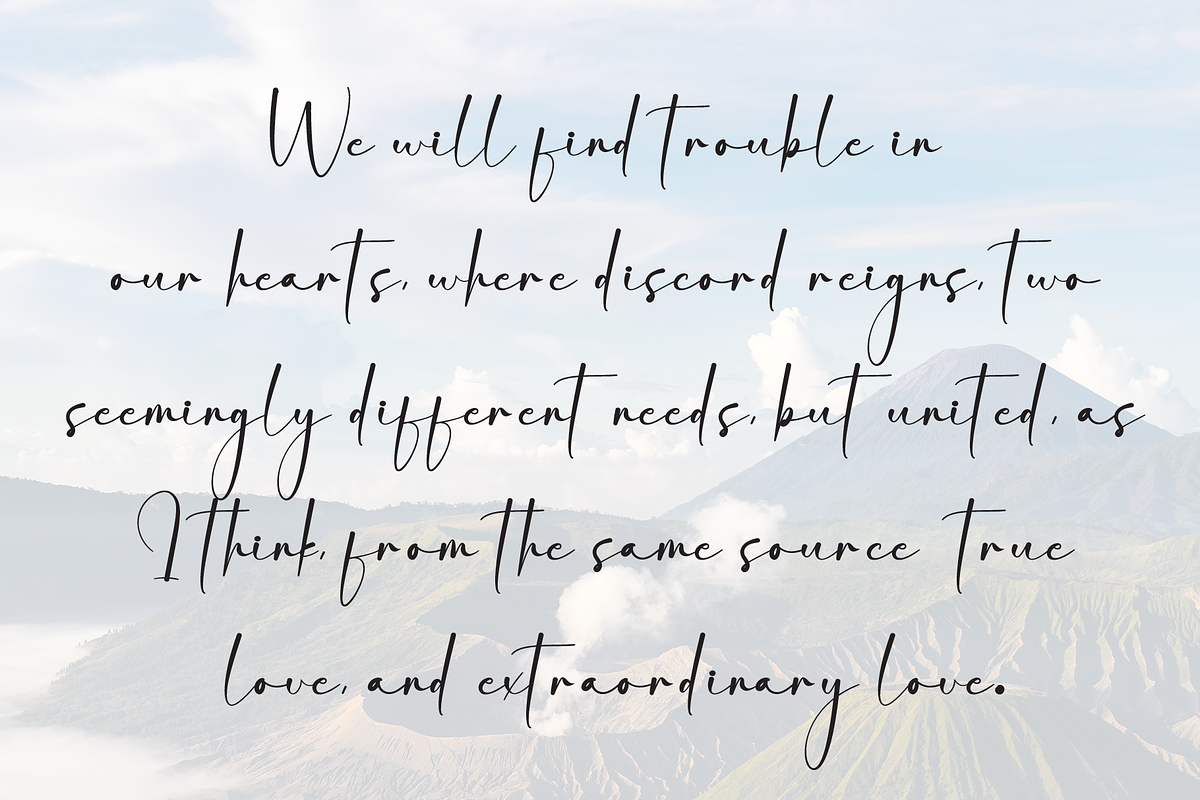 We will find trouble in
our hearts, where discord reigns, two
seemingly different needs, but united, as
I think, from the same source true
love, and extraordinary love.